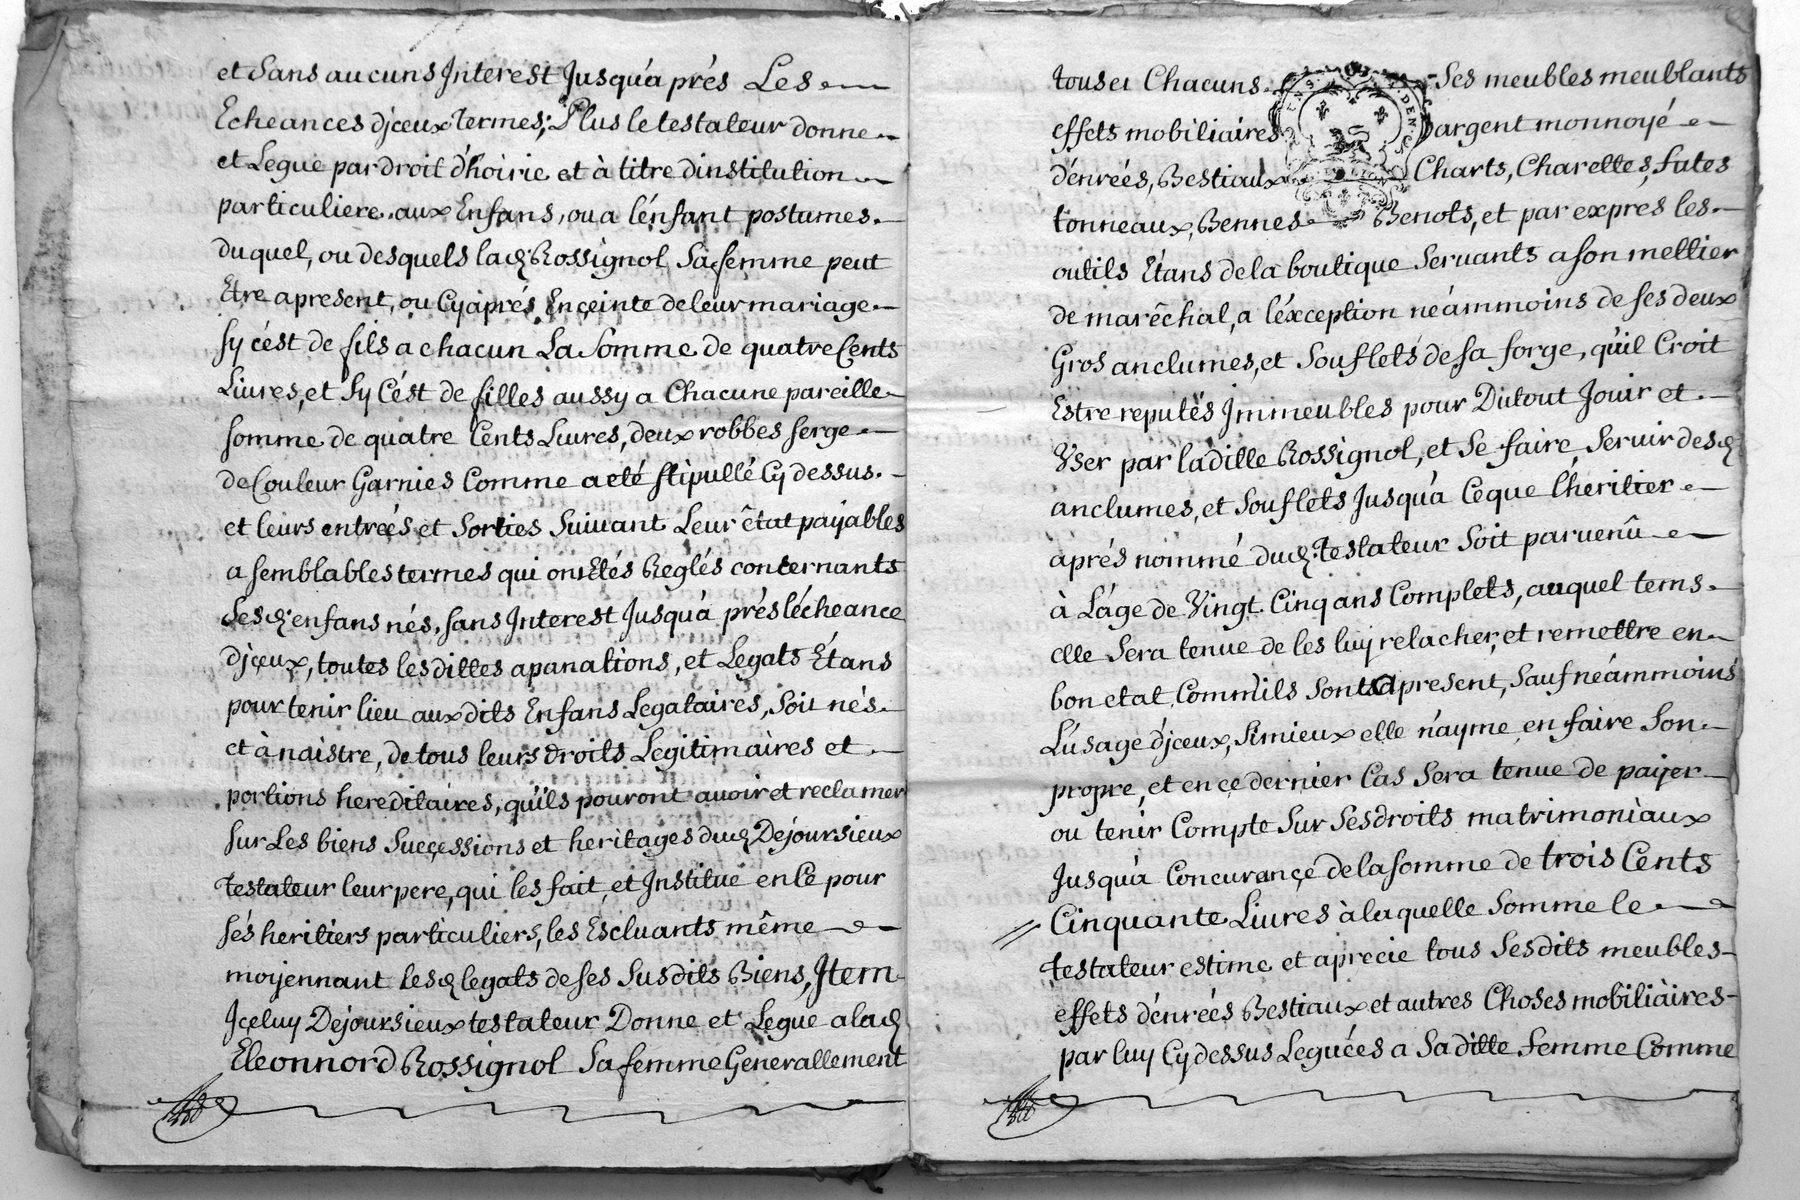 et Sans aucuns Interest Jusqu'a prés Les
Echeances djceux Termes; Plus le testateur donne
et Legue par droit d'hoirie et à titre dinstitution
particuliere aux Enfans, ou a lénfant postumes.
duquel, ou desquels lad. Rossignol Sa femme peut
Etre apresent, ou Cyaprés Ençeinte de leur mariage
sy cést de fils a chacun La Somme de quatre Cents
Livres, et Sy Cést de filles aussy a Chacune pareille
somme de quatre Cents Livres, deux robbes serge
de Couleur Garnies Comme a eté stipullé Cy dessus.
et leurs entreés et Sorties Suivant Leur êtat payables
a semblables termes qui ont Etés Reglés conternants
Sesd. enfans nés, sans Interest Jusqu'a prés lécheance
djçeux, toutes lesdittes apanations, et Legats Etans
pour tenir lieu auxdits Enfans Legataires, Soit nés
et à naistre, de tous leurs droits Legitimaires et
portions hereditaires, qu'ils pouront avoir et reclamer
sur Les biens Sucçessions et heritages dud. Dejoursieux
testateur leur pere, qui les fait, et Institue en Ce pour
sés heritiers particuliers, les Escluants même
moyennant lesd. legats de ses Susdits Biens, Item
Içeluy Dejoursieux testateur Donne et Legue a lad.
Eleonnord Rossignol Sa femme Generallement
tous et Chacuns Ses meubles meublants
effets mobiliaires argent monnoyé
dénreés, Bestiaux Charts, Charettes, futes
tonneaux, Bennes Benots, et par exprés les
outils Etans de la boutique Servants a son mettier
de marêchal, a léxception neámmoins de ses deux
Gros anclumes, et Souflets de sa forge, qu'il Croit
Estre reputés Immeubles pour Dutout Jouir et
Vser par ladille Rossignol, et Se faire Servir desd.
anclumes, et Souflets Jusqu'a Ceque Lhéritier
aprés nommé dud. testateur Soit parvenû
à Láge de Vingt Cinq ans Complets, auquel tems
elle Sera tenue de les luy relacher, et remettre en
bon etat Comm'ils Sont apresent, Sauf neámmoins
Lúsage djceux, Simieux elle n'ayme en faire Son
propre, et en çe dernier Cas Sera tenue de payer
ou tenir Compte Sur Ses droits matrimoniaux
Jusqu'a Concurançe de la somme de trois Cents
Cinquante Livres à laquelle Somme le
testateur estime et aprecie tous Sesdits meubles
effets dénreés Bestiaux et autres Choses mobiliaires
par luy Cy dessus Leguées a Sa ditte femme Comme